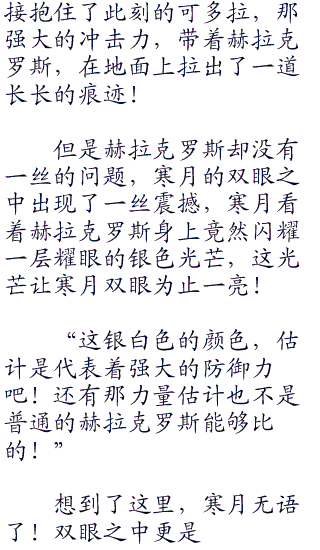 接抱住了此刻的可多拉，那
强大的冲击力，带着赫拉克
罗斯，在地面上拉出了一道
长长的痕迹！
但是赫拉克罗斯却没有
一丝的问题，寒月的双眼之
中出现了一丝震撼，寒月看
着赫拉克罗斯身上竟然闪耀
一层耀眼的银色光芒，这光
芒让寒月双眼为止一亮！
“这银白色的颜色，估
计是代表着强大的防御力
吧！还有那力量估计也不是
普通的赫拉克罗斯能够比
的！”
想到了这里，寒月无语
了！双眼之中更是